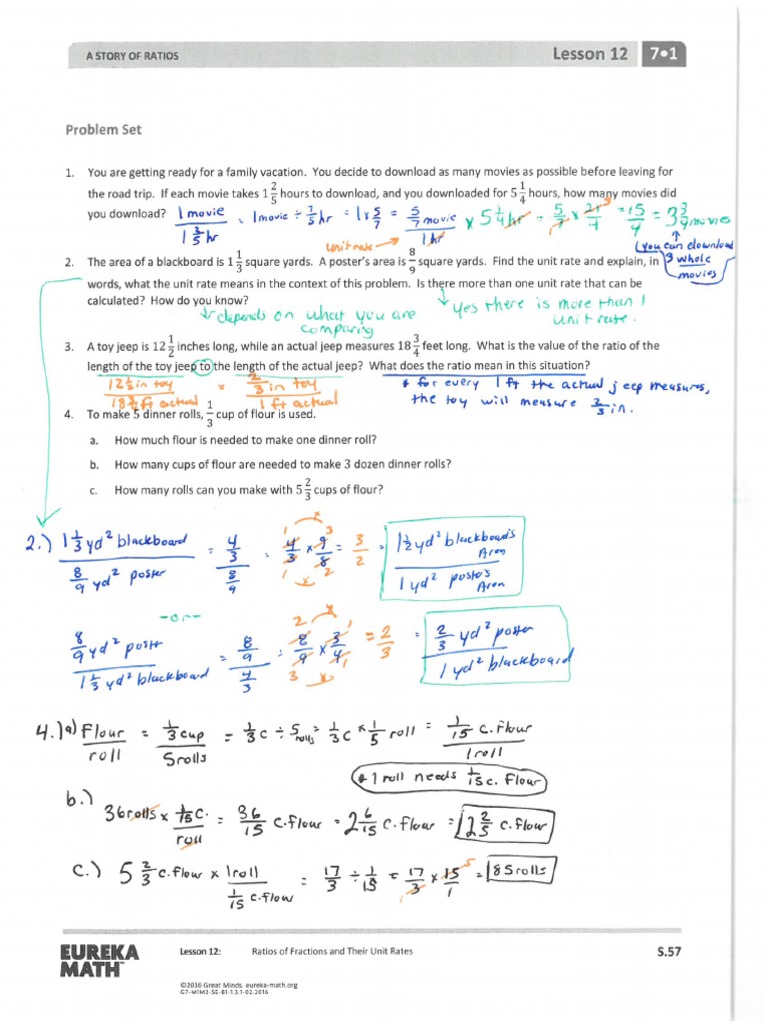 A STORY OF RATIOS Lesson 12 7•1
Problem Set
1. You are getting ready for a family vacation. You decide to download as many movies as possible before leaving for
the road trip. If each movie takes 1 2/5 hours to download, and you downloaded for 5 1/4 hours, how many movies did
you download? 1 movie / 1 2/5 hr = 1 movie ÷ 7/5 hr = 1 x 5/7 = 5/7 movie / 1 hr x 5 1/4 hr = 5/7 x 21/4 = 15/4 = 3 3/4 movies
unit rate
(you can download
3 whole
movies)
2. The area of a blackboard is 1 1/3 square yards. A poster's area is 8/9 square yards. Find the unit rate and explain, in
words, what the unit rate means in the context of this problem. Is there more than one unit rate that can be
calculated? How do you know?
depends on what you are
comparing
yes there is more than 1
unit rate.
3. A toy jeep is 12 1/2 inches long, while an actual jeep measures 18 3/4 feet long. What is the value of the ratio of the
length of the toy jeep to the length of the actual jeep? What does the ratio mean in this situation?
12 1/2 in toy / 18 3/4 ft actual = 2/3 in toy / 1 ft actual
* for every 1 ft the actual jeep measures,
the toy will measure 2/3 in.
4. To make 5 dinner rolls, 1/3 cup of flour is used.
a. How much flour is needed to make one dinner roll?
b. How many cups of flour are needed to make 3 dozen dinner rolls?
c. How many rolls can you make with 5 2/3 cups of flour?
2.) 1 1/3 yd² blackboard / 8/9 yd² poster = 4/3 / 8/9 = 4/3 x 9/8 = 3/2 = 1 1/2 yd² blackboard's Area / 1 yd² poster's Area
-or-
8/9 yd² poster / 1 1/3 yd² blackboard = 8/9 / 4/3 = 8/9 x 3/4 = 2/3 = 2/3 yd² poster / 1 yd² blackboard
4.) a) Flour / roll = 1/3 cup / 5 rolls = 1/3 c ÷ 5 rolls = 1/3 c x 1/5 roll = 1/15 c. flour / 1 roll
* 1 roll needs 1/15 c. flour
b.) 36 rolls x 1/15 c. / roll = 36/15 c. flour = 2 6/15 c. flour = 2 2/5 c. flour
c.) 5 2/3 c. flour x 1 roll / 1/15 c. flow = 17/3 ÷ 1/15 = 17/3 x 15/1 = 85 rolls
EUREKA
MATH™
Lesson 12: Ratios of Fractions and Their Unit Rates
S.57
©2016 Great Minds. eureka-math.org
G7-M1M2-SE-B1-1.3.1-02.2016